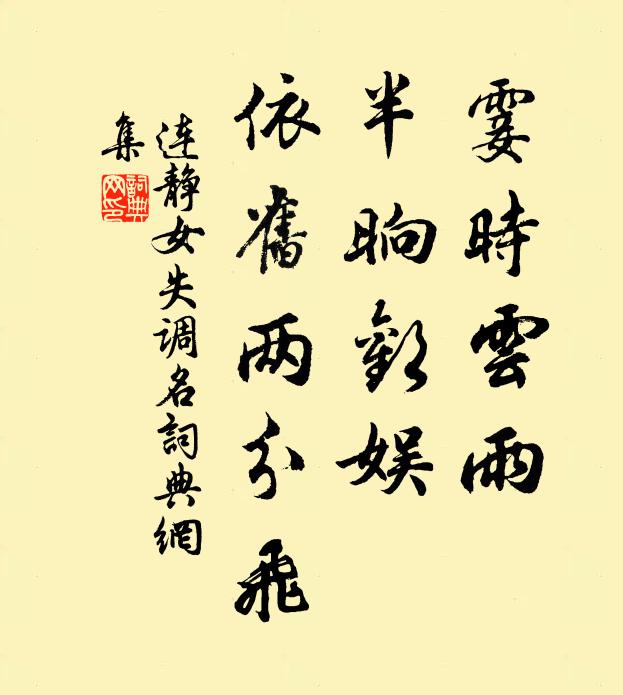 霎時雲雨
半晌歡娛
依舊兩分飛
連静女失調名詞典網
集
詞典
网印